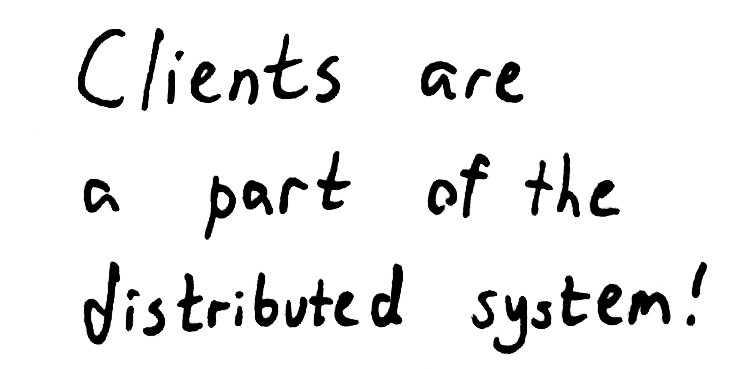 Clients are
a part of the
distributed system!